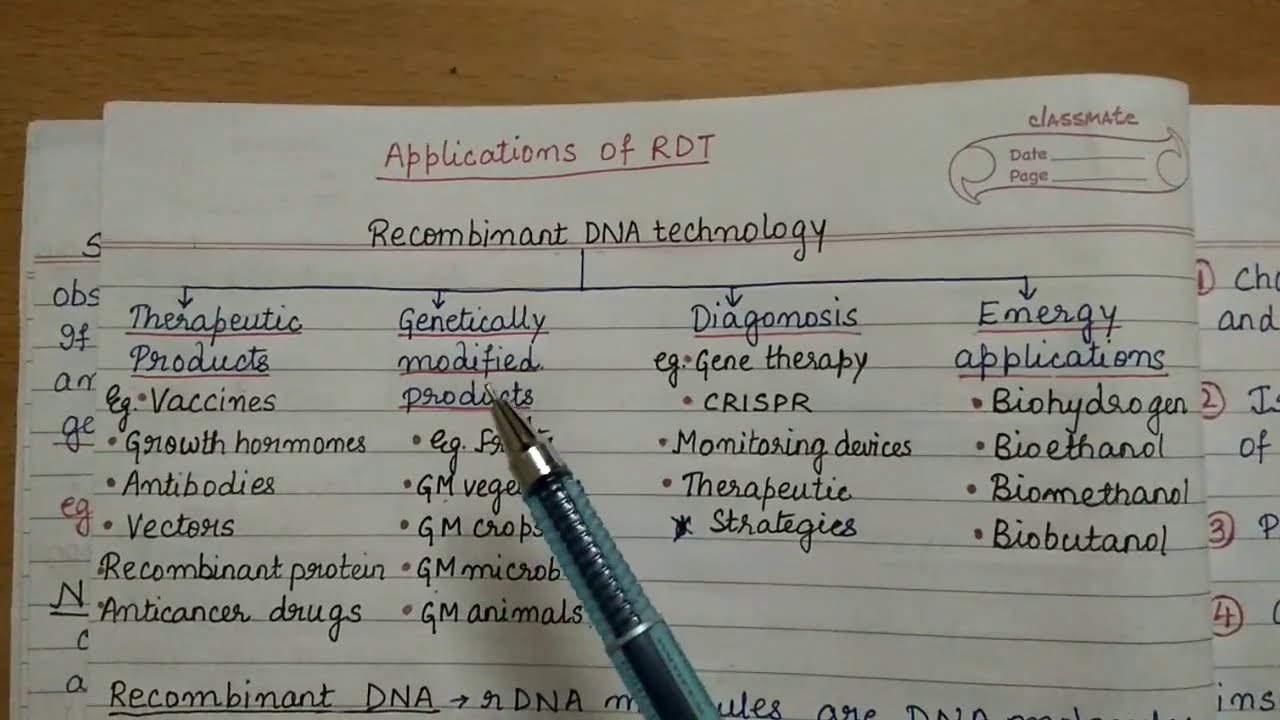 classmate
Date
Page
Applications of RDT
Recombinant DNA technology
Therapeutic Products
Eg. • Vaccines
• Growth hormones
• Antibodies
• Vectors
• Recombinant protein
• Anticancer drugs
Genetically modified products
• eg.
• GM
• GM crops
• GM
• GM animals
Diagnosis
eg: Gene therapy
• CRISPR
• Monitoring devices
• Therapeutic
* Strategies
Energy applications
• Biohydrogen
• Bioethanol
• Biomethanol
• Biobutanol
Recombinant DNA → rDNA are DNA
obs
eg
N
a
1
and
2
of
3
4
ins